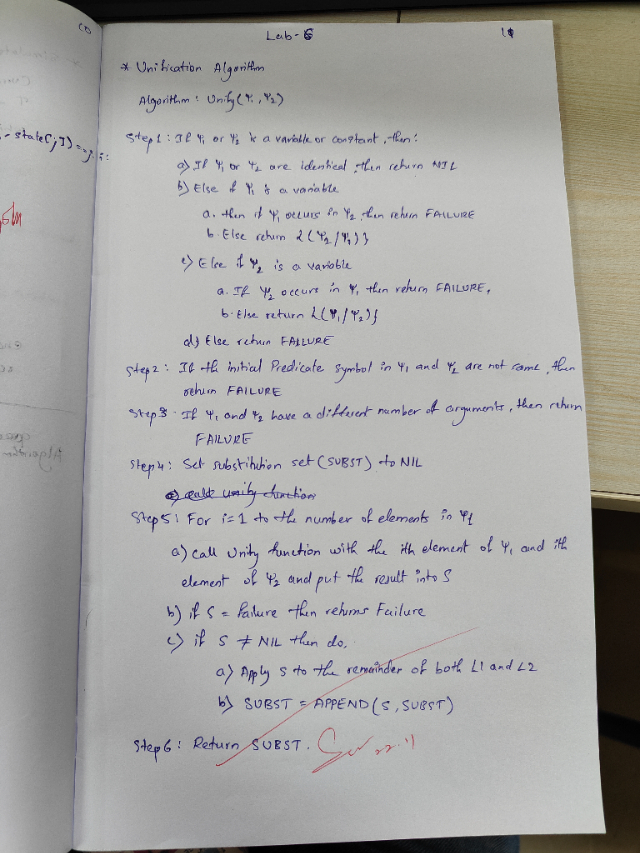 Lab-6
* Unification Algorithm
Algorithm: Unify(Ψ₁, Ψ₂)
Step1: If Ψ₁ or Ψ₂ is a variable or constant, then:
a) If Ψ₁ or Ψ₂ are identical, then return NIL
b) Else if Ψ₁ is a variable
a. then if Ψ₁ occurs in Ψ₂, then return FAILURE
b. Else return {(Ψ₂/Ψ₁)}
c) Else if Ψ₂ is a variable
a. If Ψ₂ occurs in Ψ₁ then return FAILURE,
b. Else return {(Ψ₁/Ψ₂)}
d) Else return FAILURE
Step2: If the initial Predicate symbol in Ψ₁ and Ψ₂ are not same, then
return FAILURE
Step3: If Ψ₁ and Ψ₂ have a different number of arguments, then return
FAILURE
Step4: Set substitution set (SUBST) to NIL
a) call unify function
Step5: For i=1 to the number of elements in Ψ₁
a) call Unify function with the ith element of Ψ₁ and ith
element of Ψ₂ and put the result into S
b) if S = failure then returns Failure
c) if S ≠ NIL then do,
a) Apply S to the remainder of both L1 and L2
b) SUBST = APPEND(S, SUBST)
Step6: Return SUBST.